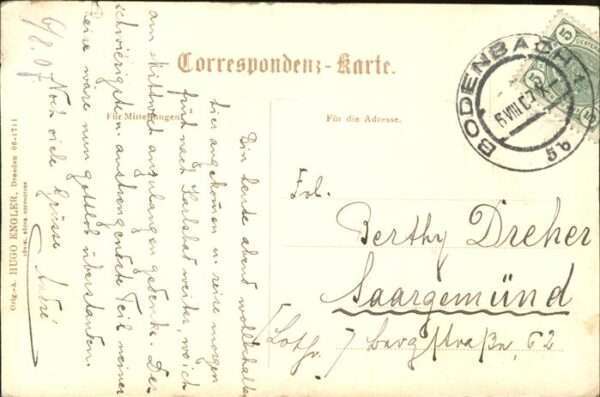 Correspondenz-Karte.
Für Mitteilungen
Für die Adresse.
BODENBACH 1
6 VIII 07
5b
5
5
5
Bin heute abend wohlbehalten
hier angekommen u. reise morgen
früh nach Karlsbad weiter, wo ich
am Mittwoch anzulangen gedenke. Der
schwierigste u. anstrengendste Teil meiner
Reise wäre nun gottlob überstanden.
6/8.07
Noch viele Grüsse
André
Frl.
Berthy Dreher
Saargemünd
(Lothr.) Bergstraße, 62
Orig.-A. HUGO ENGLER, Dresden 06-1711